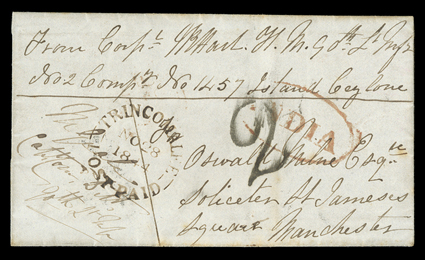 From Corpl. W Hart. H. M. 90th Lt Infy
No 2 Compy No 1457 Island Ceylone
TRINCOMALEE
POST PAID
INDIA
2
Oswald Milne Esqre
Soliceter St Jameses
Square Manchester
Captain